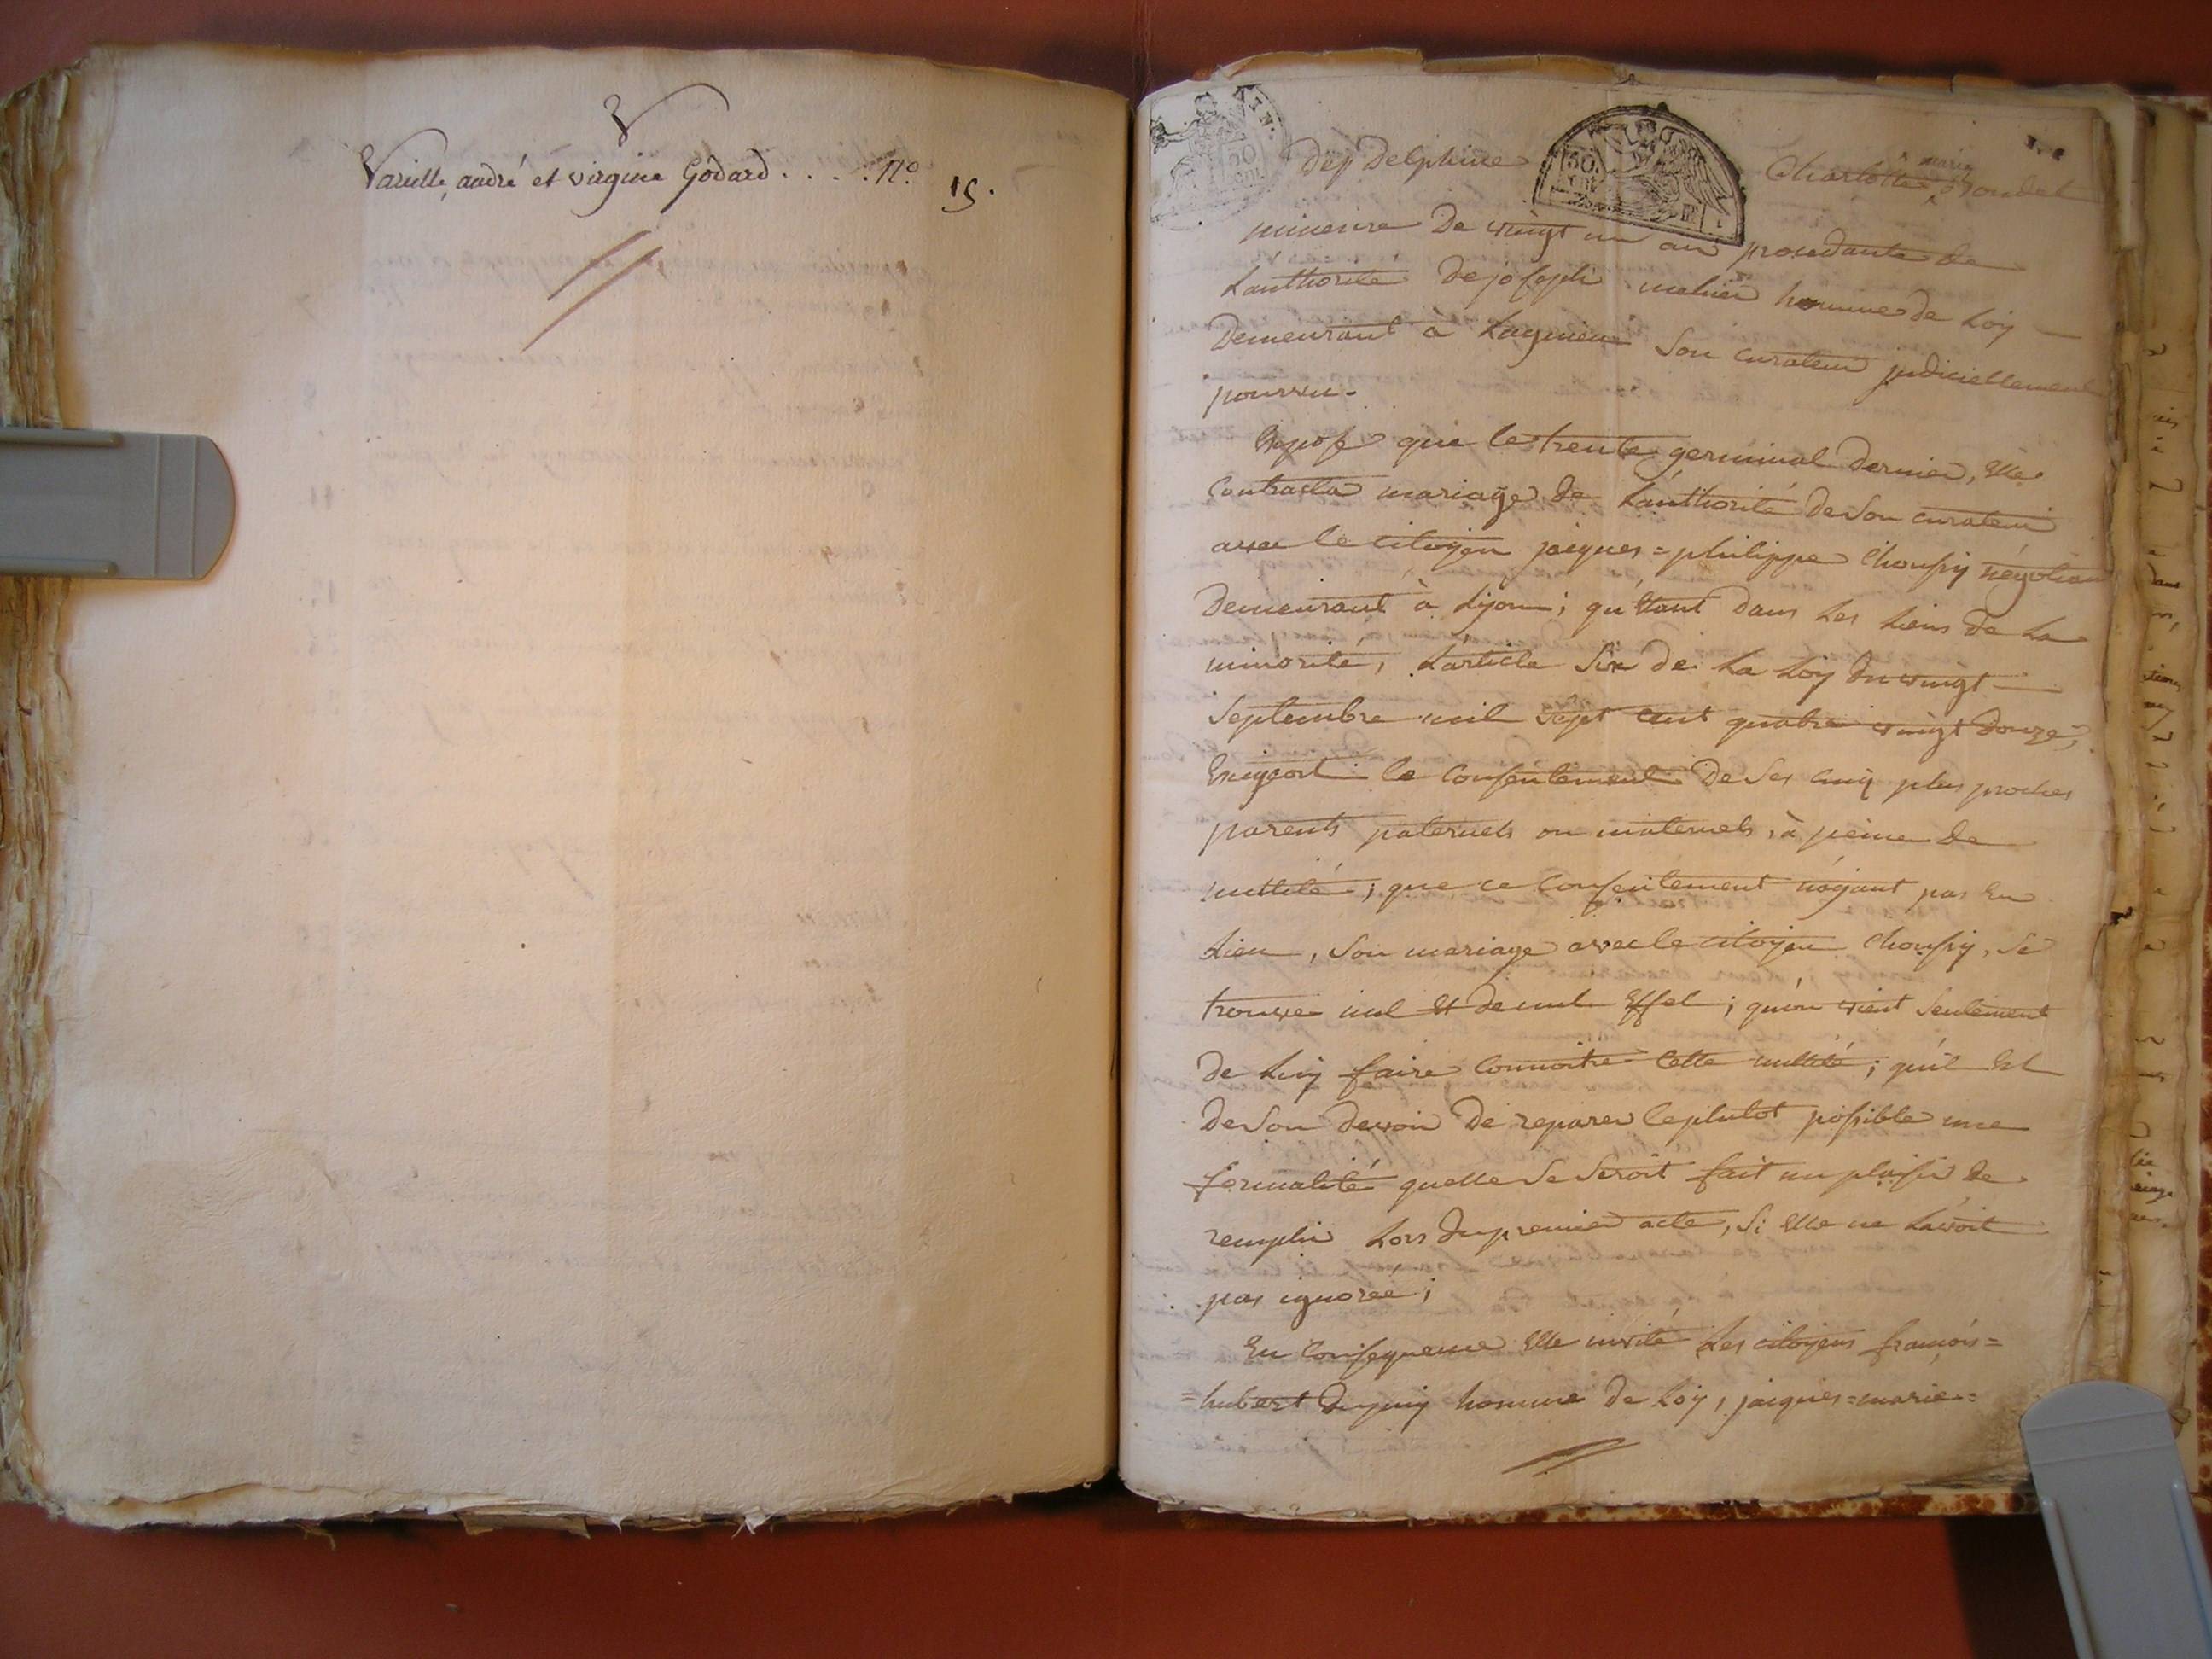 V
Vareille, andré et virginie Godard . . . . . n.o 15.
Dep Delphine Charlotte marie Bondet
mineure De vingt un ans procedante de
L'authorité De joseph melier homme de Loy
Demeurant à Lagnieu Son curateur judiciellement
pourvu.
Expose que le trente germinal dernier, Elle
Contracta mariage de L'authorité de Son curateur
avec le citoyen jacques=philippe Choussy négotiant
Demeurant à Lyon; qu'Etant dans Les Liens de La
minorité, L'article Six de La Loy du vingt
Septembre mil Sept cent quatre vingt Douze,
Exigeoit le Consentement De Ses cinq plus proches
parents paternels ou maternels, à peine de
nullité; que ce Consentement n'ayant pas Eu
Lieu, Son mariage avec le citoyen Choussy, Se
trouve nul Et de nul Effet; qu'on vient Seulement
de Luy faire Connoitre Cette nullité; qu'il Est
De Son devoir De reparer le plutot possible une
formalité quelle Se Seroit fait un plaisir de
remplir Lors du premier acte, Si Elle ne Lavoit
pas ignorée;
En Consequence Elle invite Les citoyens françois=
=hubert Dupuy homme de Loy, jacques=marie=